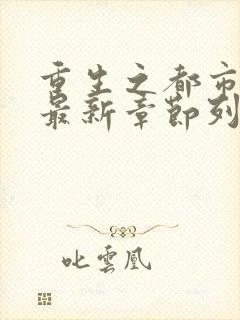 重生之都市
最新章節列
叱雲凰